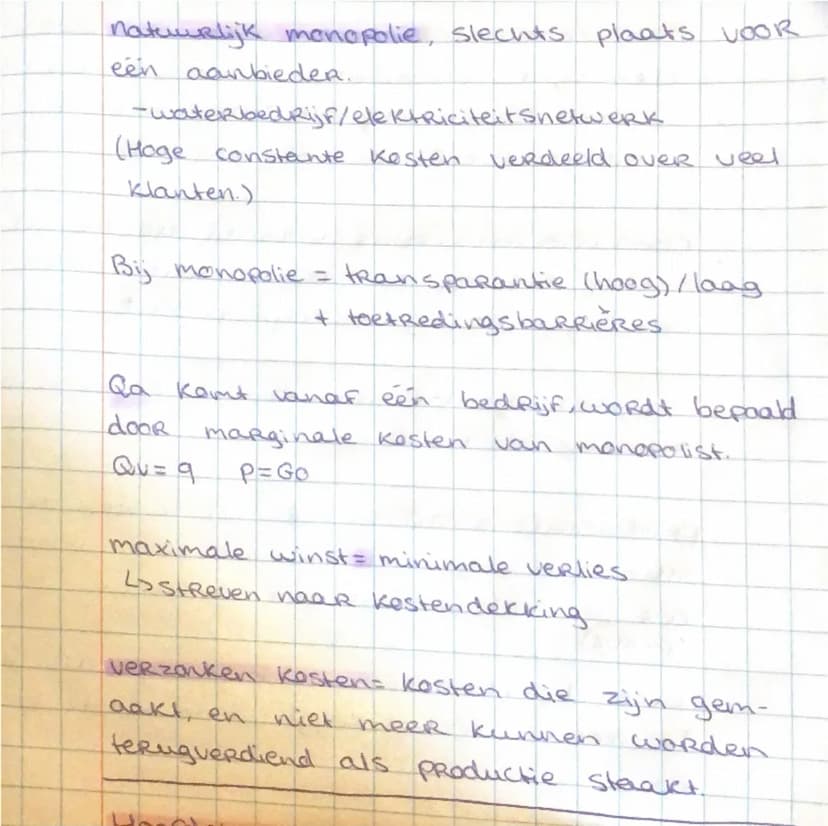 natuurlijk monopolie, slechts plaats voor
één aanbieder.
-waterbedrijf/elektriciteitsnetwerk
(Hoge constante kosten verdeeld over veel
klanten.)
Bij monopolie = transparantie (hoog)/laag
+ toetredingsbarrières
Qa komt vanaf één bedrijf, wordt bepaald
door marginale kosten van monopolist.
Qv = q P=GO
maximale winst = minimale verlies
↳ streven naar kostendekking
verzonken kosten = kosten die zijn gem-
aakt, en niet meer kunnen worden
terugverdiend als productie staakt.